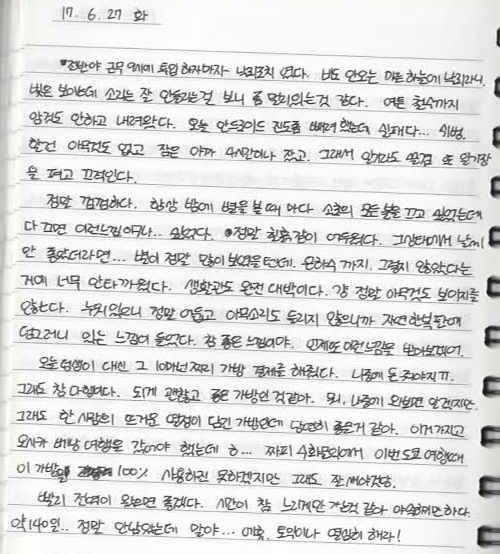 17. 6. 27 화
*초반야 근무 9시에 투입 하자마자 낙뢰조치 였다. 비도 안오는 마른 하늘에 낙뢰라니.
빛은 보이는데 소리는 잘 안들리는걸 보니 좀 멀리있는것 같다. 여튼 철수까지
암것도 안하고 내려왔다. 오늘 안드로이드 진도좀 빼려 했는데 실패다...
할건 아무것도 없고 잠은 아까 4시간이나 잤고. 그래서 일기나 쓸겸 또 일기장
을 펴고 끄적인다.
정말 껌껌하다. 항상 밤에 별을 볼 때 마다 소초의 모든 불을 끄고 싶었는데
다 끄면 이런느낌이구나... 싶었다. 정말 칠흑같이 어두웠다. 그상태에서 날씨
만 좋았더라면... 별이 정말 많이 보였을텐데. 은하수 까지. 그렇지 않았다는
거에 너무 안타까웠다. 생활관도 완전 대박이다. 걍 정말 아무것도 보이지를
않는다. 누워 있으니 정말 어둡고 아무소리도 들리지 않으니까 자연 한복판에
덩그러니 있는 느낌이 들었다. 참 좋은 느낌이야. 언제또 이런느낌을 받아보겠어.
오늘 형이 대신 그 10만넌 짜리 가방 결제를 해줬다. 나중에 돈 줘야지 ㅠ.
그래도 참 다행이다. 되게 괜찮고 좋은 가방인 것같아. 뭐, 나중에 와보면 알겠지만.
그래도 한 사람의 뜨거운 열정이 담긴 가방인데 당연히 좋은거 같아. 이거 가지고
오사카 배낭 여행을 갔어야 했는데 ㅎ... 짜피 수화물와에서 이번 도쿄 여행때
이 가방을 100% 사용하진 못하겠지만 그래도 잘 써야겠당.
빨리 전역이 왔으면 좋겠다. 시간이 참 느리게만 가는것 같아 야속하면 하다.
약 140일.. 정말 안남았는데 말야... 에휴, 토익이나 열심히 해라!